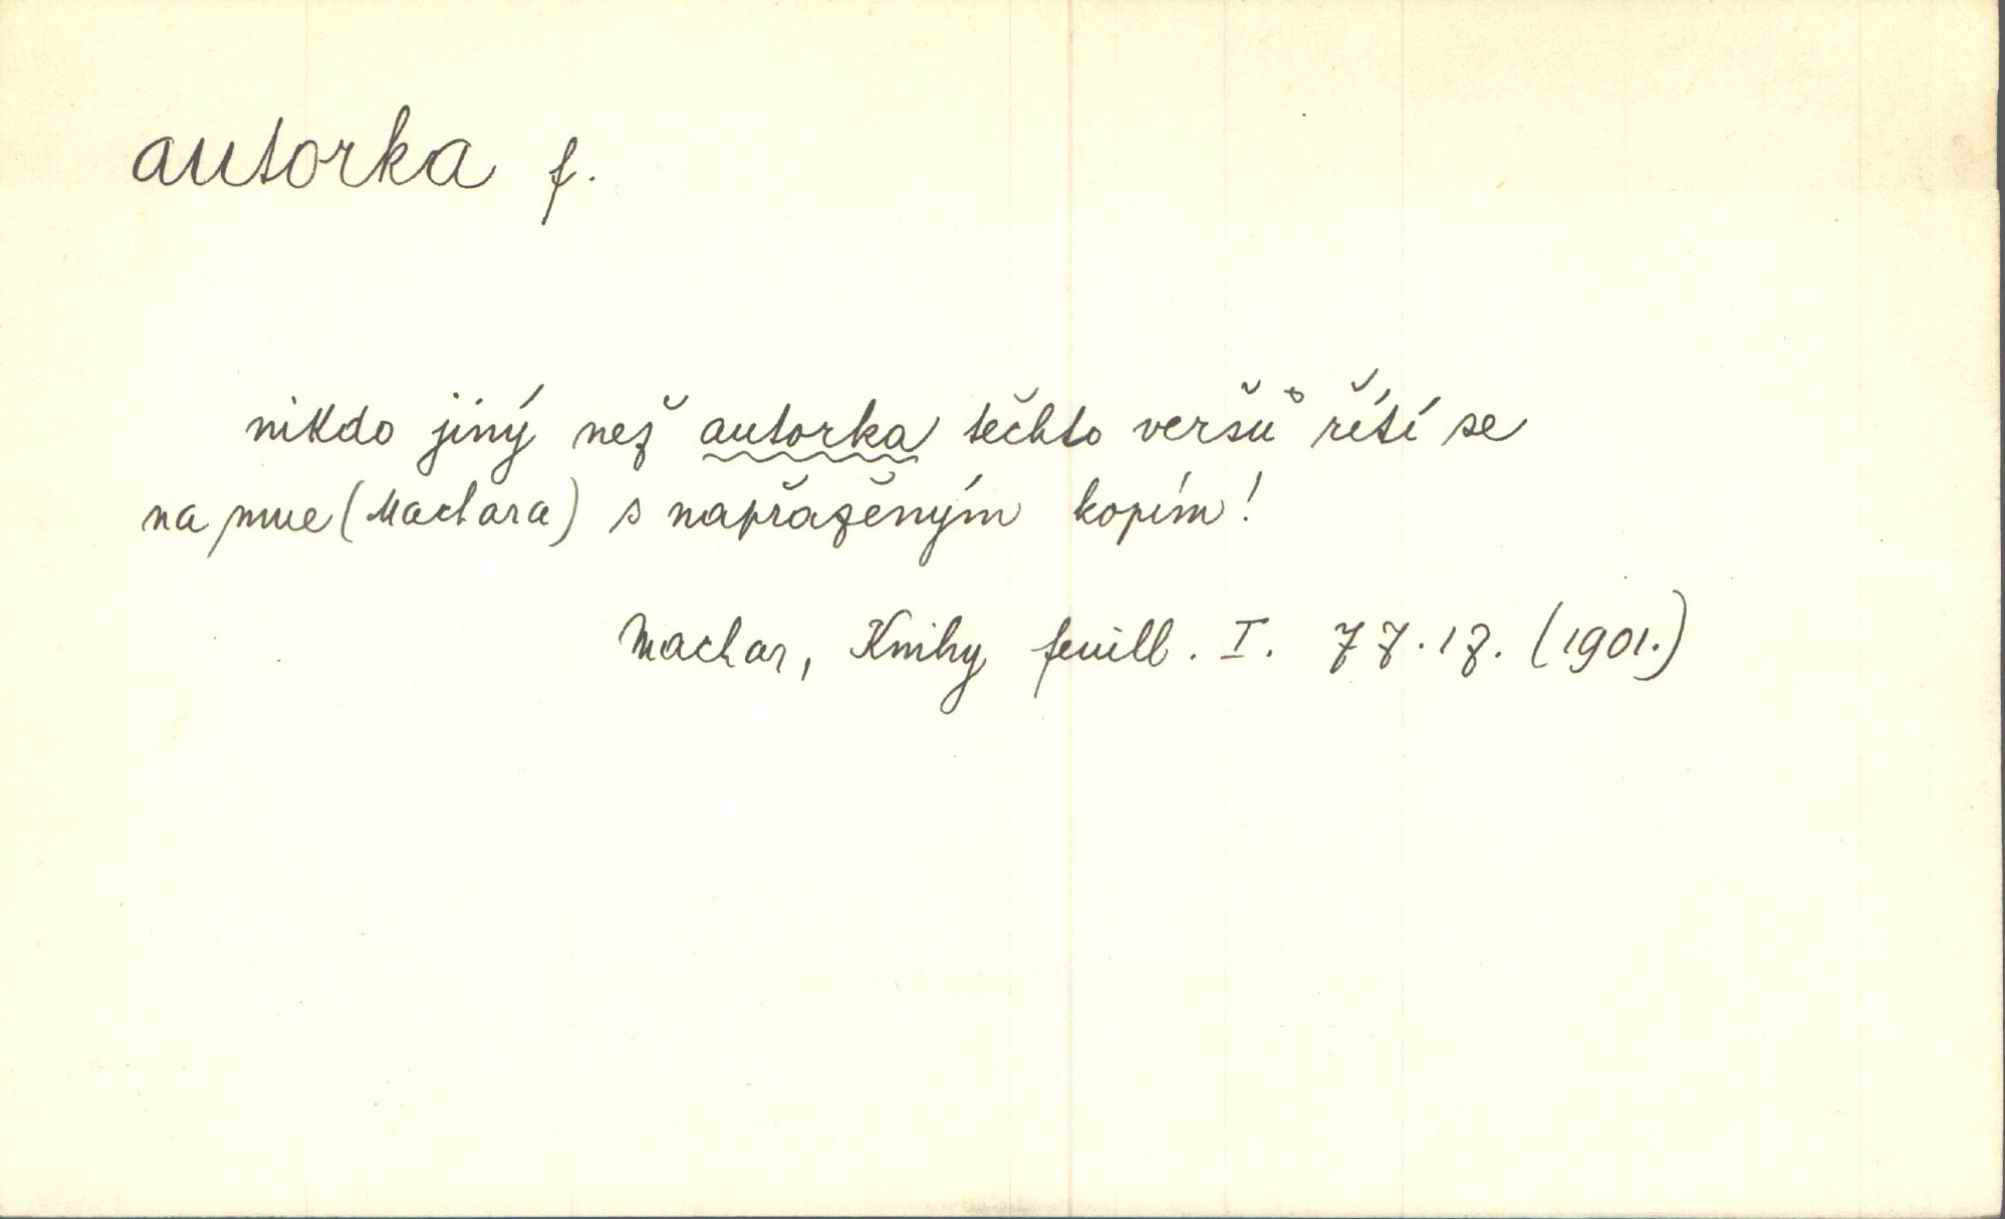 autorka f.
nikdo jiný než autorka těchto veršů řítí se
na mne (Machara) s napřaženým kopím!
Machar, Knihy feuill. I. 77.17. (1901.)